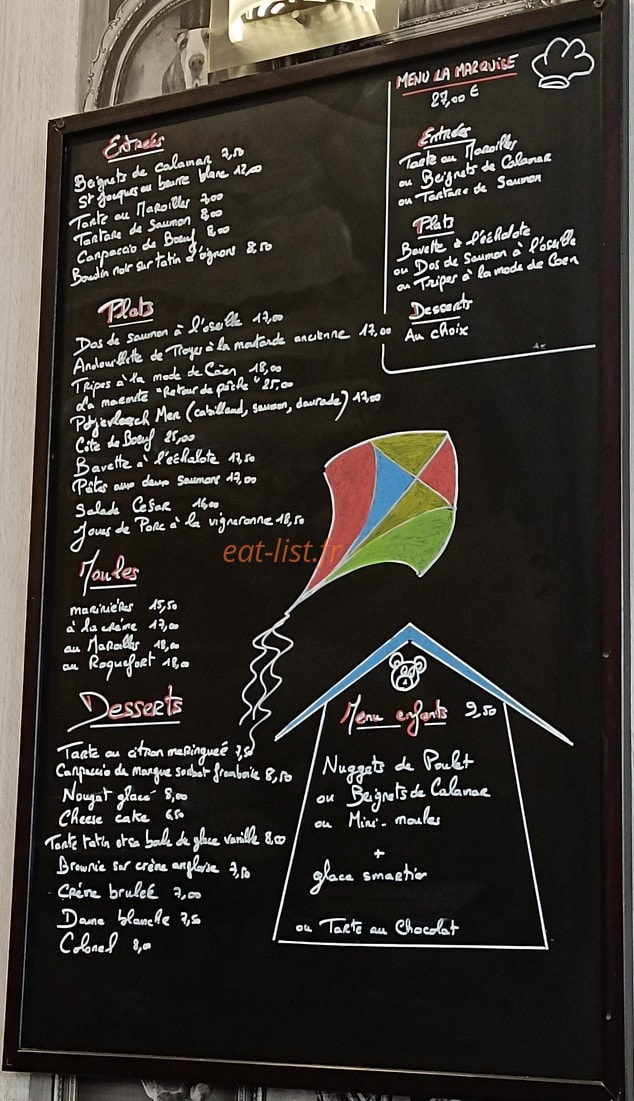 Entrées
Beignets de calamar 7,50
St Jacques au beurre blanc 12,00
Tarte au Maroilles 7,00
Tartare de Saumon 8,00
Carpaccio de Boeuf 8,00
Boudin noir sur tatin d'oignons 8,50
Plats
Dos de saumon à l'oseille 17,00
Andouillette de Troyes à la moutarde ancienne 17,00
Tripes à la mode de Caen 18,00
La marmite "Retour de pêche" 25,00
Potjevleesch Mer (cabillaud, saumon, daurade) 17,00
Côte de Boeuf 25,00
Bavette à l'échalote 17,50
Pâtes aux deux saumons 17,00
Salade César 16,00
Joues de Porc à la vigneronne 18,50
Moules
marinières 15,50
à la crème 17,00
au Maroilles 18,00
au Roquefort 18,00
Desserts
Tarte au citron meringueé 7,50
Carpaccio de mangue sorbet framboise 8,50
Nougat glacé 8,00
Cheese cake 6,50
Tarte tatin et sa boule de glace vanille 8,00
Brownie sur crème anglaise 7,50
Crème bruleé 7,00
Dame blanche 7,50
Colonel 8,00
MENU LA MARQUISE
27,00 €
Entrées
Tarte au Maroilles
ou Beignets de Calamar
ou Tartare de Saumon
Plats
Bavette à l'échalote
ou Dos de Saumon à l'oseille
ou Tripes à la mode de Caen
Desserts
Au choix
eat-list.fr
Menu enfants 9,50
Nuggets de Poulet
ou Beignets de Calamar
ou Mini-moules
+
glace smartier
ou Tarte au Chocolat